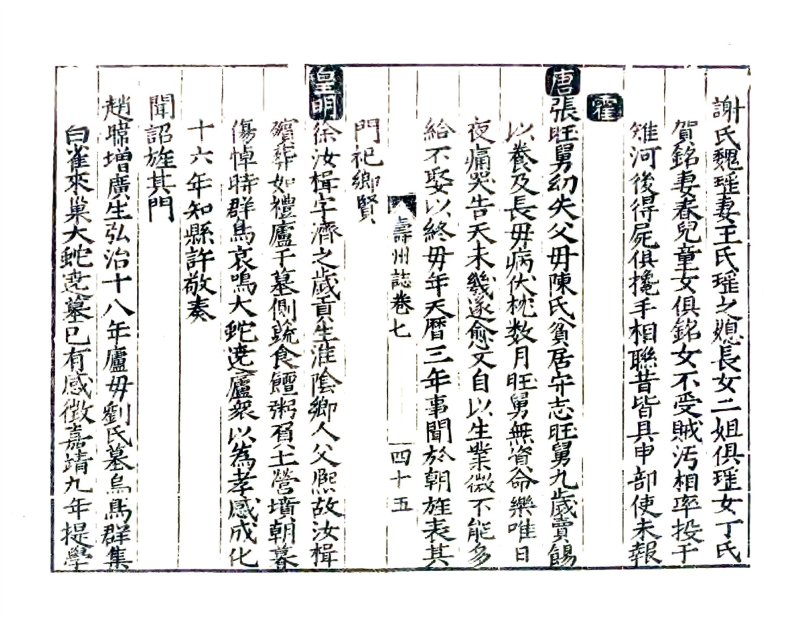 謝氏魏瑾妻王氏瑾之媳長女二姐俱瑾女丁氏
賀銘妻春兒童女俱銘女不受賊污相率投于
雉河後得屍俱攙手相聯昔皆具申部使未報
霍
唐張旺舅幼失父母陳氏貧居守志旺舅九歲賣餳
以養及長母病伏枕数月旺舅無資命樂唯日
夜痛哭告天未幾遂愈文自以生業微不能多
給不娶以終母年天曆三年事聞於朝旌表其
門祀鄉賢
壽州誌卷七
四十五
皇明徐汝楫字濟之歲貢生淮陰鄉人父熈故汝楫
殯葬如禮廬于墓側疏食饘粥負土營墳朝暮
傷悼時群鳥哀鳴大蛇遶廬衆以為孝感成化
十六年知縣許敬奏
聞詔旌其門
趙㬠增廣生弘治十八年廬母劉氏墓烏鳥群集
白雀來巢大蛇遶墓已有感徵嘉靖九年提學